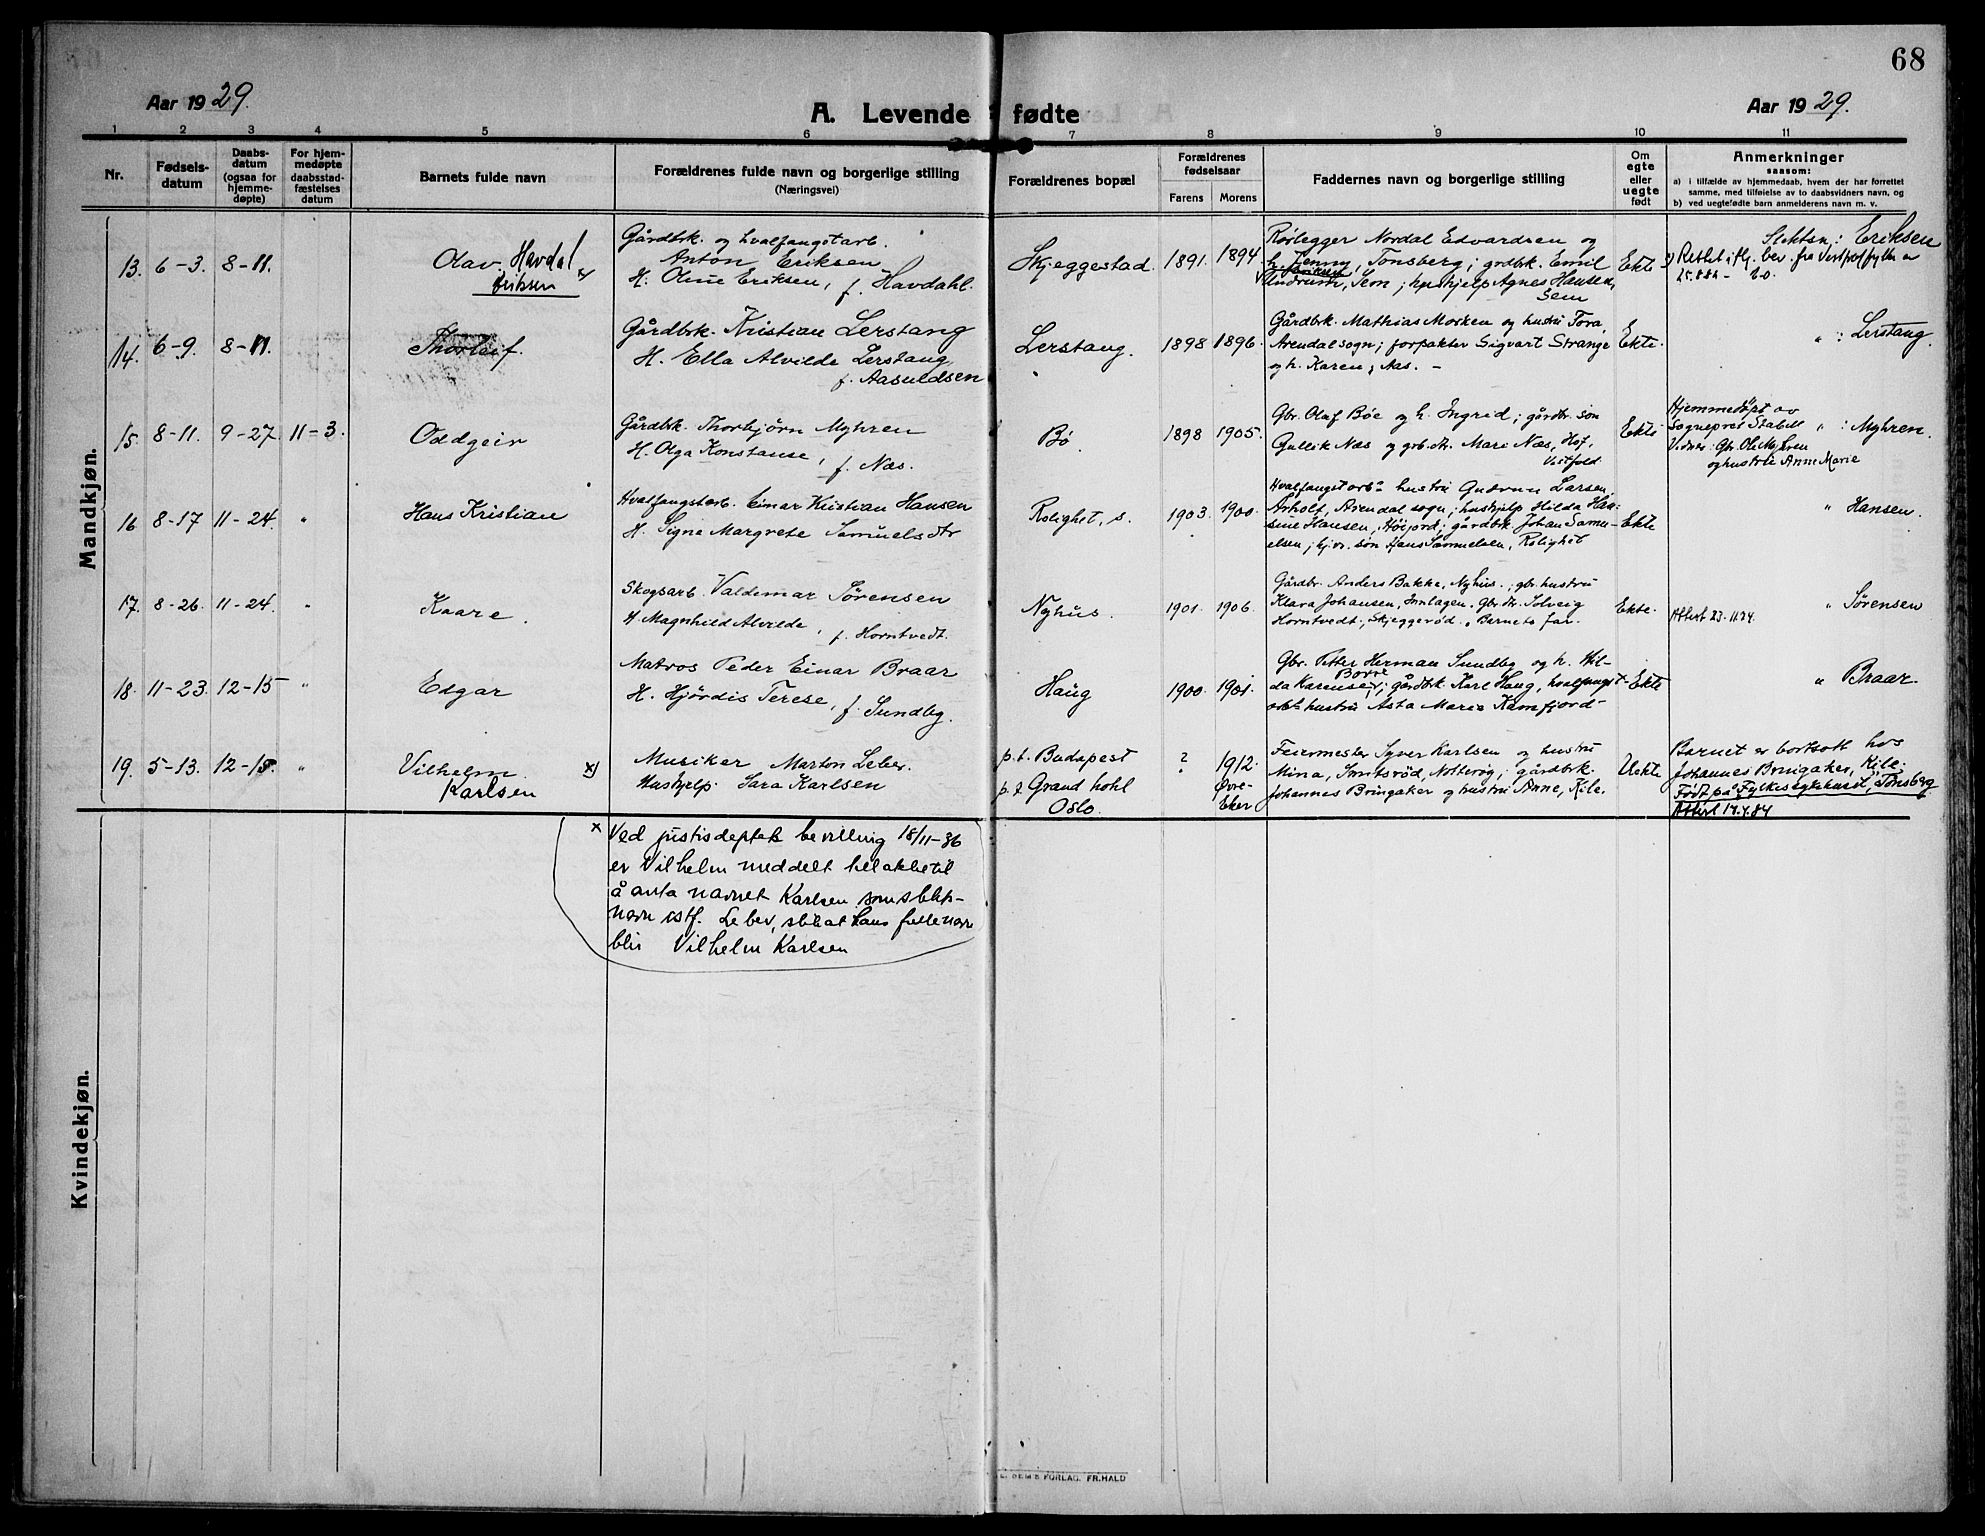 68
Aar 1929.
A. Levende fødte
Aar 1929.
1 2 3 4 5 6 7 8 9 10 11
Nr.
Fødsels-
datum
Daabs-
datum
(ogsaa for
hjemme-
døpte)
For hjem-
medøpte
daabsstad-
fæstelses
datum
Barnets fulde navn
Forældrenes fulde navn og borgerlige stilling
(Næringsvei)
Forældrenes bopæl
Forældrenes
fødselsaar
Farens Morens
Faddernes navn og borgerlige stilling
Om
egte
eller
uegte
født
Anmerkninger
saasom:
a) i tilfælde av hjemmedaab, hvem der har forrettet
samme, med tilføielse av to daabsvidners navn, og
b) ved uegtefødte barn anmelderens navn m. v.
Mandkjøn.
13. 6-3. 8-11.
Olav Havdal
Eriksen
Gårdbrk. og hvalfangstarb.
Anton Eriksen
H. Oline Eriksen, f. Havdahl.
Skjeggestad. 1891. 1894.
Rørlegger Nordal Edvardsen og
h. Jenny, Tønsberg; grdbrk. Emil
Undrum, Sem; hushjelp Agnes Hansen,
Sem
Ekte
Slektsn.: Eriksen
Rettet iflg. bev. fra Vestfold
14. 6-9. 8-11.
Thorleif.
Gårdbrk. Kristian Lerstang
H. Ella Alvilde Lerstang
f. Aasuldsen
Lerstang. 1898 1896.
Gårdbrk. Mathias Morken og hustru Tora,
Arendal sogn; forpakter Sigvart Strange
og h. Karen, Aas. -
Ekte.
" : Lerstang.
15. 8-11. 9-27. 11-3.
Oddgeir
Gårdbrk. Thorbjørn Myhren
H. Olga Konstanse, f. Næs.
Bø 1898 1905.
Gbr. Olaf Bøe og h. Ingrid; gårdbr. søn
Gullik Næs og grbr. dtr. Mari Næs, Hof,
Vestfold
Ekte
Hjemmedøpt av
Sogneprest Stabell " : Myhren.
Vidner: Gbr. Ole Myhren
og hustru Anne Marie
16 8-17 11-24. "
Hans Kristian
Hvalfangstarb. Einar Kristian Hansen
H. Signe Margrete Samuelsdtr
Rolighet, s. 1903. 1900.
Hvalfangstarb.s hustru Gudrun Larsen,
Arholt, Arendal sogn; hushjelp Hilda Han-
sine Hansen, Høijord; gårdbrk. Johan Samu-
elsen; hjv. søn Hans Samuelsen, Rolighet
Ekte
" Hansen.
17. 8-26. 11-24. "
Kaare.
Skogsarb. Valdemar Sørensen
H. Magnhild Alvilde, f. Horntvedt.
Nyhus. 1901. 1906.
Gårdbr. Anders Bakke, Nyhus.; gbr. hustru
Klara Johansen, Innlagen. Gbr. dtr. Solveig
Horntvedt, Skjeggerød. Barnets far.
Ekte.
" Sørensen
Attest 23.11.74.
18. 11-23. 12-15 "
Edgar
Matros Peder Einar Braar
H. Hjördis Terese, f. Sundby.
Haug 1900. 1901.
Gbr. Petter Herman Sundby og h. Hil-
da Karensen, Borre; gårdbrk. Karl Haug, hvalfangst-
arb.s hustru Asta Marie Kamfjord -
Ekte
" Braar.
19. 5-13. 12-15. "
Vilhelm
Karlsen
x)
Musiker Marton Leber.
Hushjelp. Sara Karlsen
p.t. Budapest
p.t. Grand hotel
Oslo.
? 1912.
Øvre-
Eker
Feiermester Syver Karlsen og hustru
Mina, Smitsrød, Nøtterøy; gårdbrk.
Johannes Bringaker og hustru Anne, Kile.
Uekte
Barnet er bortsatt hos
Johannes Bringaker, Kile.
Født på Fylkessykehuset, Tønsberg
Attest 17.4.84
x Ved justisdeptets bevilling 18/11-36
er Vilhelm meddelt tillatelse til
å anta navnet Karlsen som slekts-
navn istf. Leber, slik at hans fulle navn
blir Vilhelm Karlsen
Kvindekjøn.
FORLAG. FR. HALD